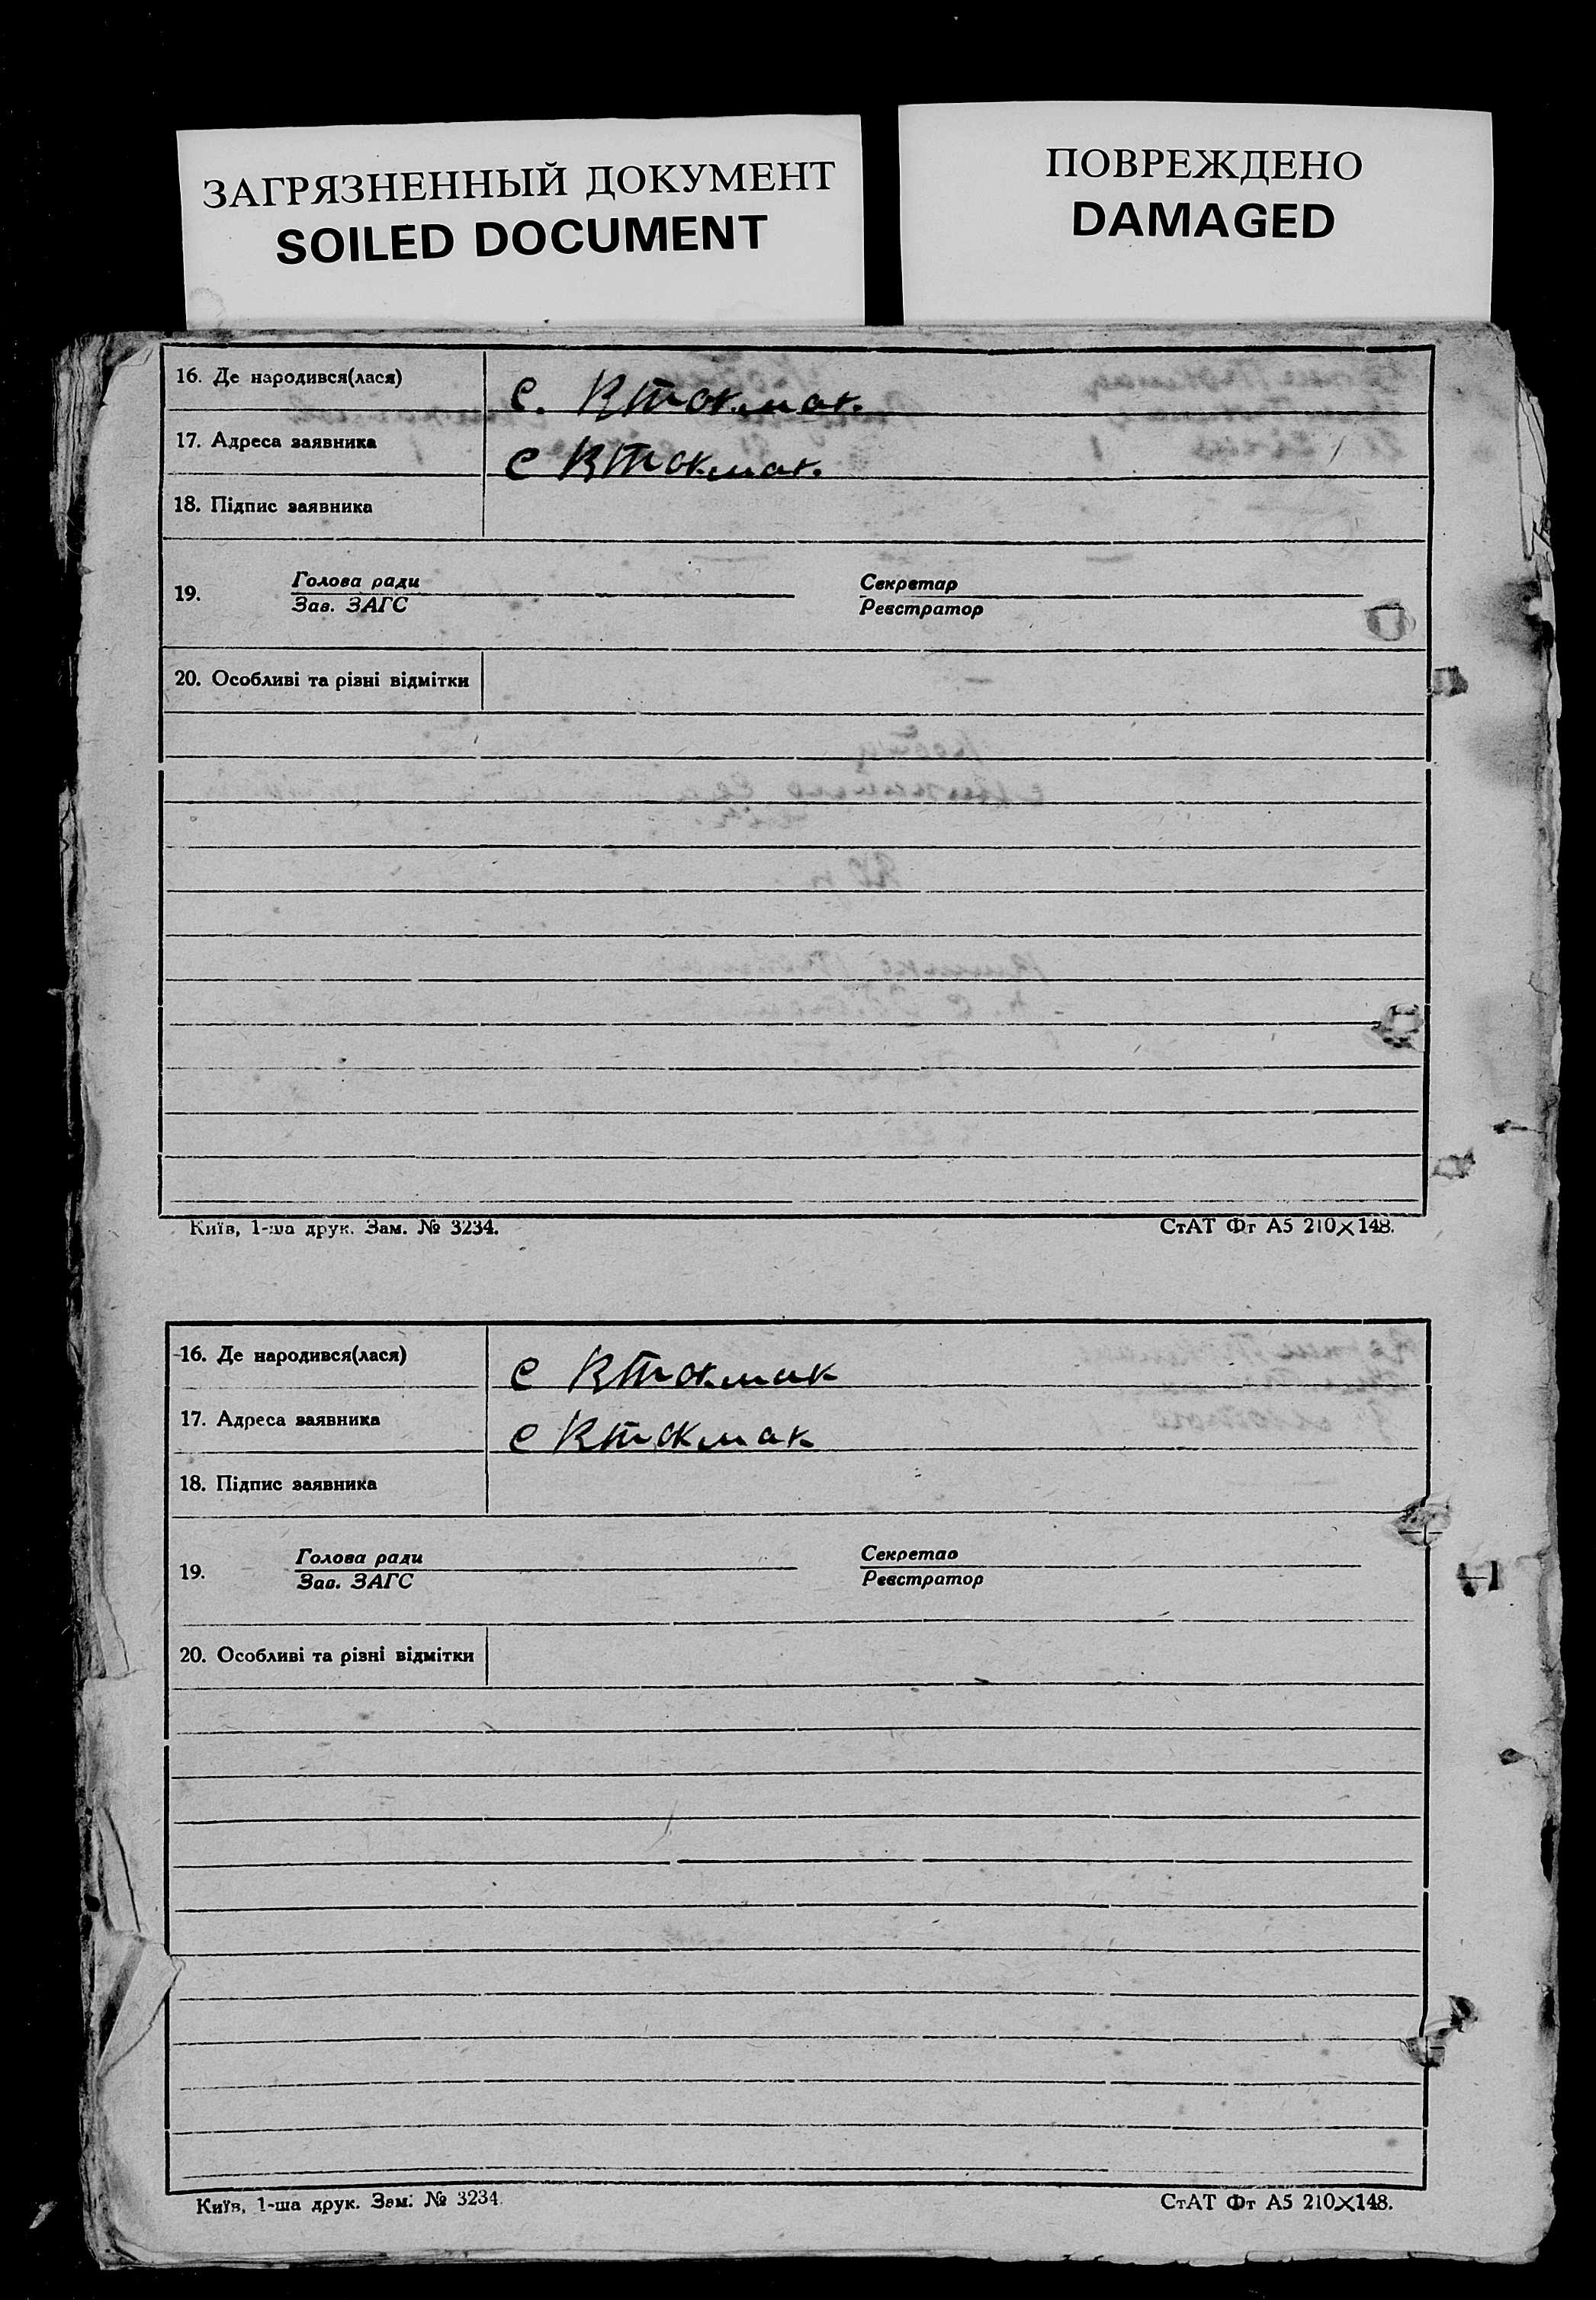 ЗАГРЯЗНЕННЫЙ ДОКУМЕНТ
SOILED DOCUMENT
ПОВРЕЖДЕНО
DAMAGED
16. Де народився(лася) с. Втокмак.
17. Адреса заявника с Втокмак.
18. Підпис заявника
19. Голова ради Секретар
Зав. ЗАГС Реєстратор
20. Особливі та різні відмітки
Київ, 1-ша друк. Зам. № 3234. СтАТ Фт А5 210×148.
16. Де народився(лася) с Втокмак
17. Адреса заявника с Втокмак
18. Підпис заявника
19. Голова ради Секретар
Зав. ЗАГС Реєстратор
20. Особливі та різні відмітки
Київ, 1-ша друк. Зам. № 3234. СтАТ Фт А5 210×148.